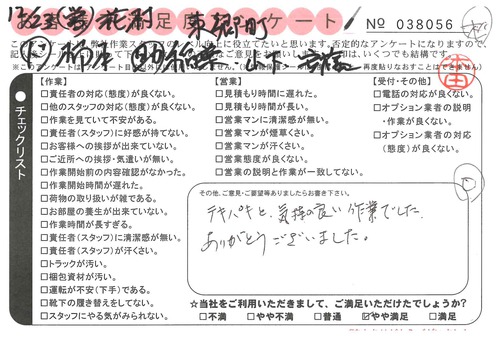 足度 ケート
No 038056
このアンケートは、弊社作業スタッフのレベル向上に役立てたいと思います。否定的なアンケートになりますので、
【作業】
□責任者の対応(態度)が良くない。
□他のスタッフの対応(態度)が良くない。
□作業を見ていて不安がある。
□責任者(スタッフ)に好感が持てない。
□お客様への挨拶が出来ていない。
□ご近所への挨拶・気遣いが無い。
□作業開始前の内容確認がなかった。
□作業開始時間が遅れた。
□荷物の取り扱いが雑である。
□お部屋の養生が出来ていない。
□作業時間が長すぎる。
□責任者(スタッフ)に清潔感が無い。
□責任者(スタッフ)が汗くさい。
□トラックが汚い。
□梱包資材が汚い。
□運転が不安(下手)である。
□靴下の履き替えをしてない。
□スタッフにやる気がみられない。
【営業】
□見積もり時間に遅れた。
□見積もり時間が長い。
□営業マンに清潔感が無い。
□営業マンが煙草くさい。
□営業マンが汗くさい。
□営業態度が良くない。
□営業の説明と作業が一致してない。
【受付・その他】
□電話の対応が良くない。
□オプション業者の説明
・作業が良くない。
□オプション業者の対応
(態度)が良くない。
チェックリスト
その他、ご意見・ご要望等ありましたらお書き下さい。
テキパキと、気持の良い作業でした。
ありがとうございました。
☆当社をご利用いただきまして、ご満足いただけたでしょうか?
□不満 □やや不満 □普通 ☑やや満足 □満足